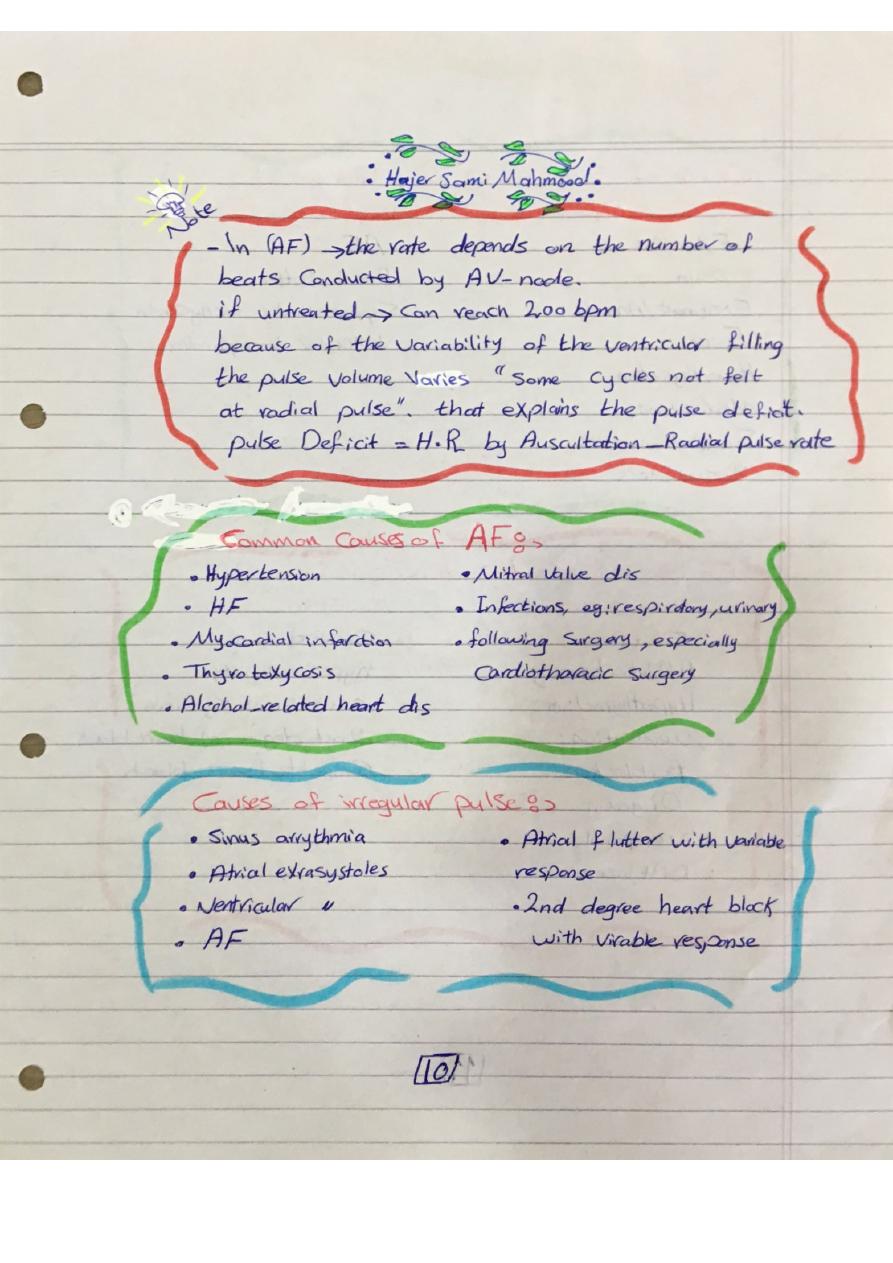 Hajer Sami Mahmood.
Note
- In (AF) → the rate depends on the number of
beats Conducted by AV-node.
if untreated ~> Can reach 200 bpm
because of the Variability of the ventricular filling
the pulse volume Varies "Some Cycles not felt
at radial pulse". that explains the pulse deficit.
pulse Deficit = H.R by Auscultation - Radial pulse rate
Common Causes of AF:
• Hypertension
• HF
• Myocardial infarction
• Thyrotoxycosis
• Alcohol-related heart dis
• Mitral Valve dis
• Infections, eg: respirdory, urinary
• following Surgery, especially
Cardiothoracic Surgery
Causes of irregular pulse:
• Sinus arrythmia
• Atrial extrasystoles
• Ventricular "
• AF
• Atrial flutter with variable
response
• 2nd degree heart block
with virable response
10